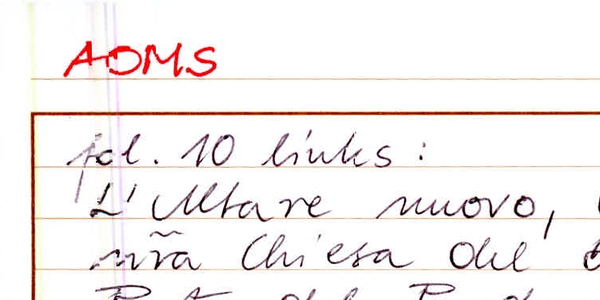 AOMS
fol. 10 links:
L'Altare nuovo,
nr̃a Chiesa del